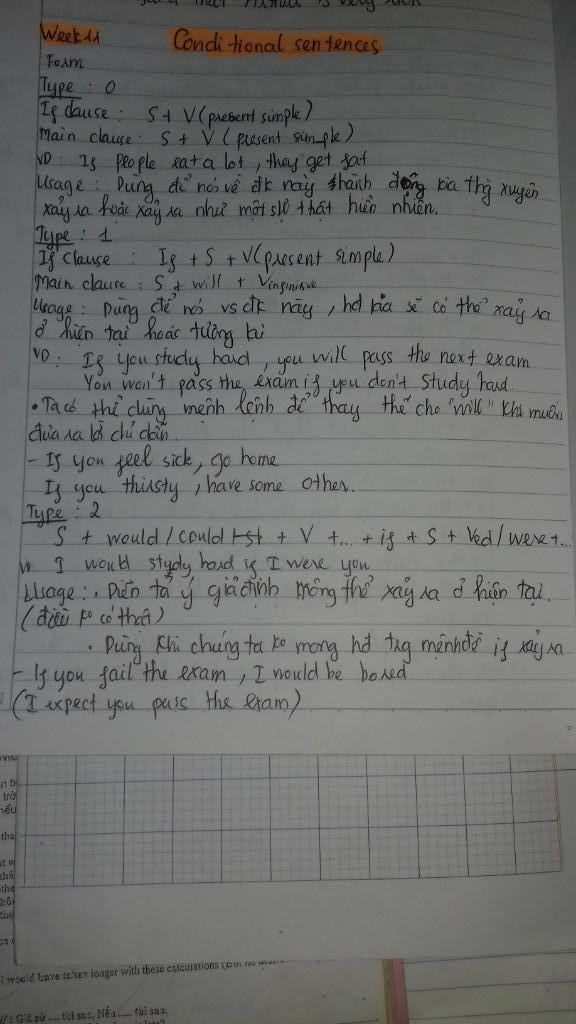 is very sick
Week 11 Conditional sentences
Form
Type : 0
If clause : S + V (present simple)
Main clause : S + V ( present simple)
VD : If people eat a lot , they get fat
Usage : Dùng để nói về đk này thành động kia thg xuyên
xảy ra hoặc xảy ra như một sự thật hiển nhiên.
Type : 1
If Clause : If + S + V(present simple)
Main clause : S + will + Vinfinitive
Usage : Dùng để nói vs đk này , hđ kia sẽ có thể xảy ra
ở hiện tại hoặc tương lai
VD : If you study hard , you will pass the next exam
You won't pass the exam if you don't study hard.
• Ta có thể dùng mệnh lệnh để thay thế cho "will" khi muốn
đưa ra lời chỉ dẫn
- If you feel sick, go home
If you thirsty , have some other.
Type : 2
S + would / could + V +... + if + S + Ved / were +...
I would study hard if I were you
Usage : • Diễn tả ý giả định không thể xảy ra ở hiện tại.
(điều ko có thật)
• Dùng khi chúng ta ko mong hđ trg mệnh đề if xảy ra
- If you fail the exam , I would be bored
(I expect you pass the exam)
trở
nếu
tha
I would have taken longer with these calculations
if : Giả sử .... tại sao, Nếu ..... tại sao.